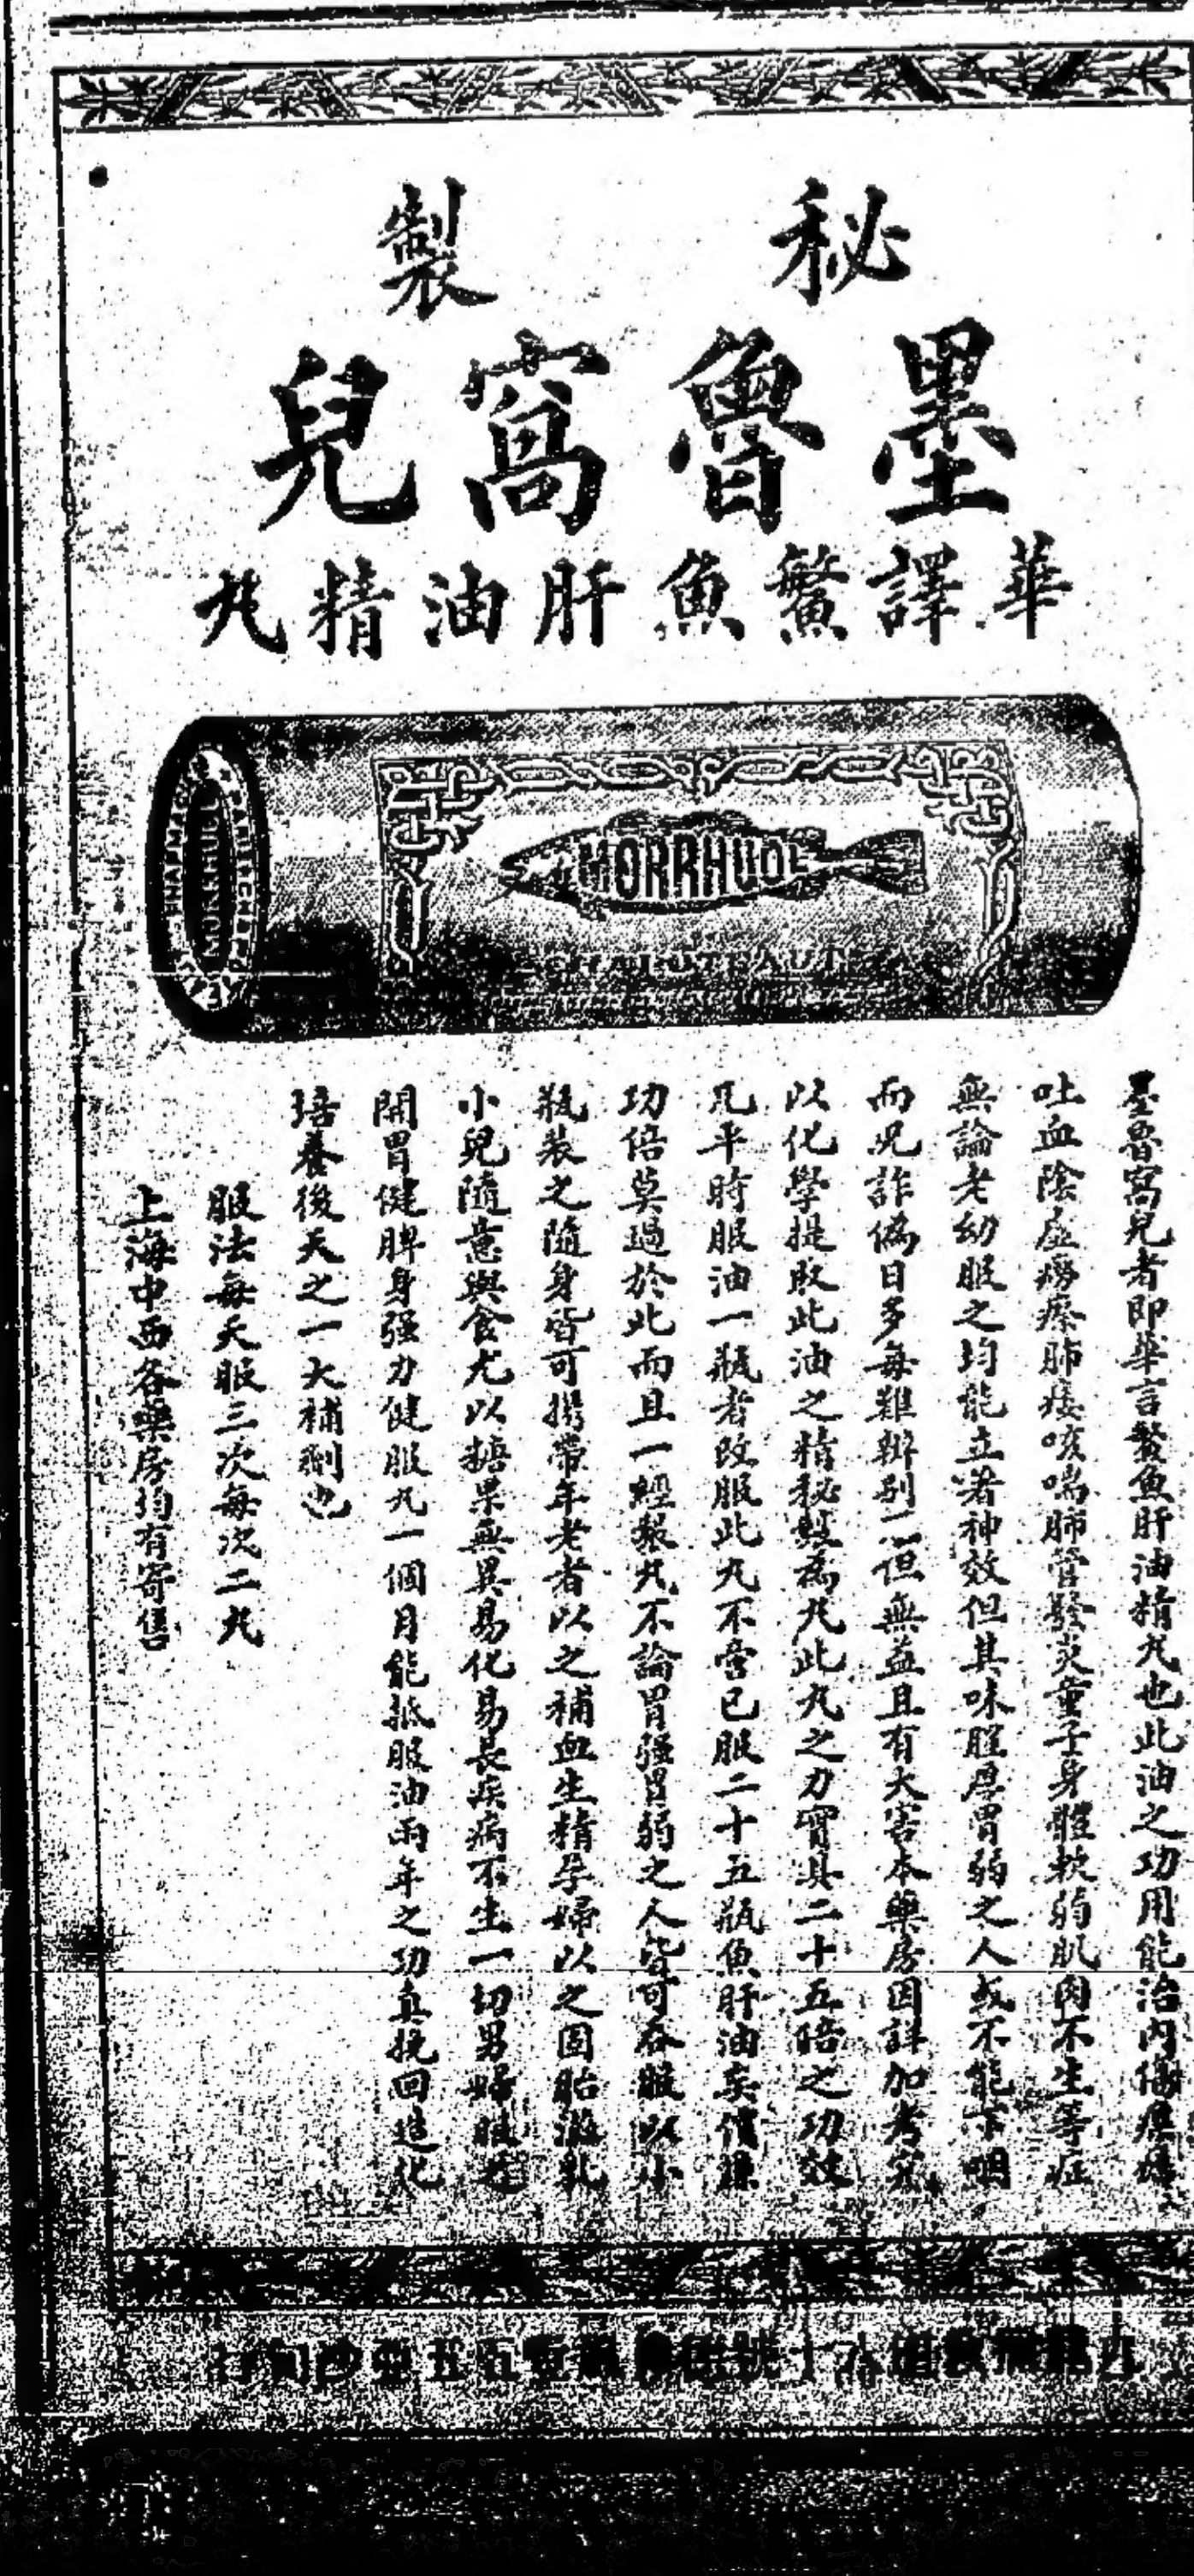 秘製
墨魯窩兒
華譯鱉魚肝油精丸
PHARMACI
MORRHUOL
MORRHUOL
CHAPOTEAUT
墨魯窩兒者即華言鱉魚肝油精丸也此油之功用能治內傷
吐血陰虛癆瘵肺痿咳喘肺管發炎童子身體軟弱肌肉不生等症
無論老幼服之均能立著神效但其味腥厚胃弱之人或不能下咽
而況詐偽日多每難辨別不但無益且有大害本藥房因詳加考究
以化學提取此油之精秘製為丸此丸之力實具二十五倍之功效
凡平時服油一瓶者改服此丸不啻已服二十五瓶魚肝油矣價廉
功倍莫過於此而且一經製丸不論胃強胃弱之人皆可吞服以小
瓶裝之隨身皆可攜帶年老者以之補血生精孕婦以之固胎滋乳
小兒隨意與食尤以糖果無異易化易長疾病不生一切男婦服之
開胃健脾身强力健服丸一個月能抵服油兩年之功真挽回造化
培養後天之一大補劑也
服法每天服三次每次二丸
上海中西各藥房均有寄售